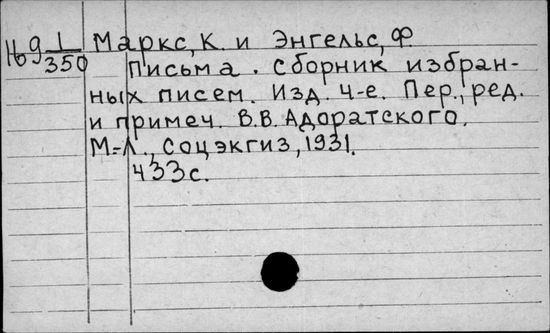 Маркс, К. и Энгельс, Ф.
Письма. Сборник избран-
ных писем. Изд. 4-е. Пер., ред.
и примеч. В.В. Адоратского.
М.-Л., Соцэкгиз, 1931.
433 с.